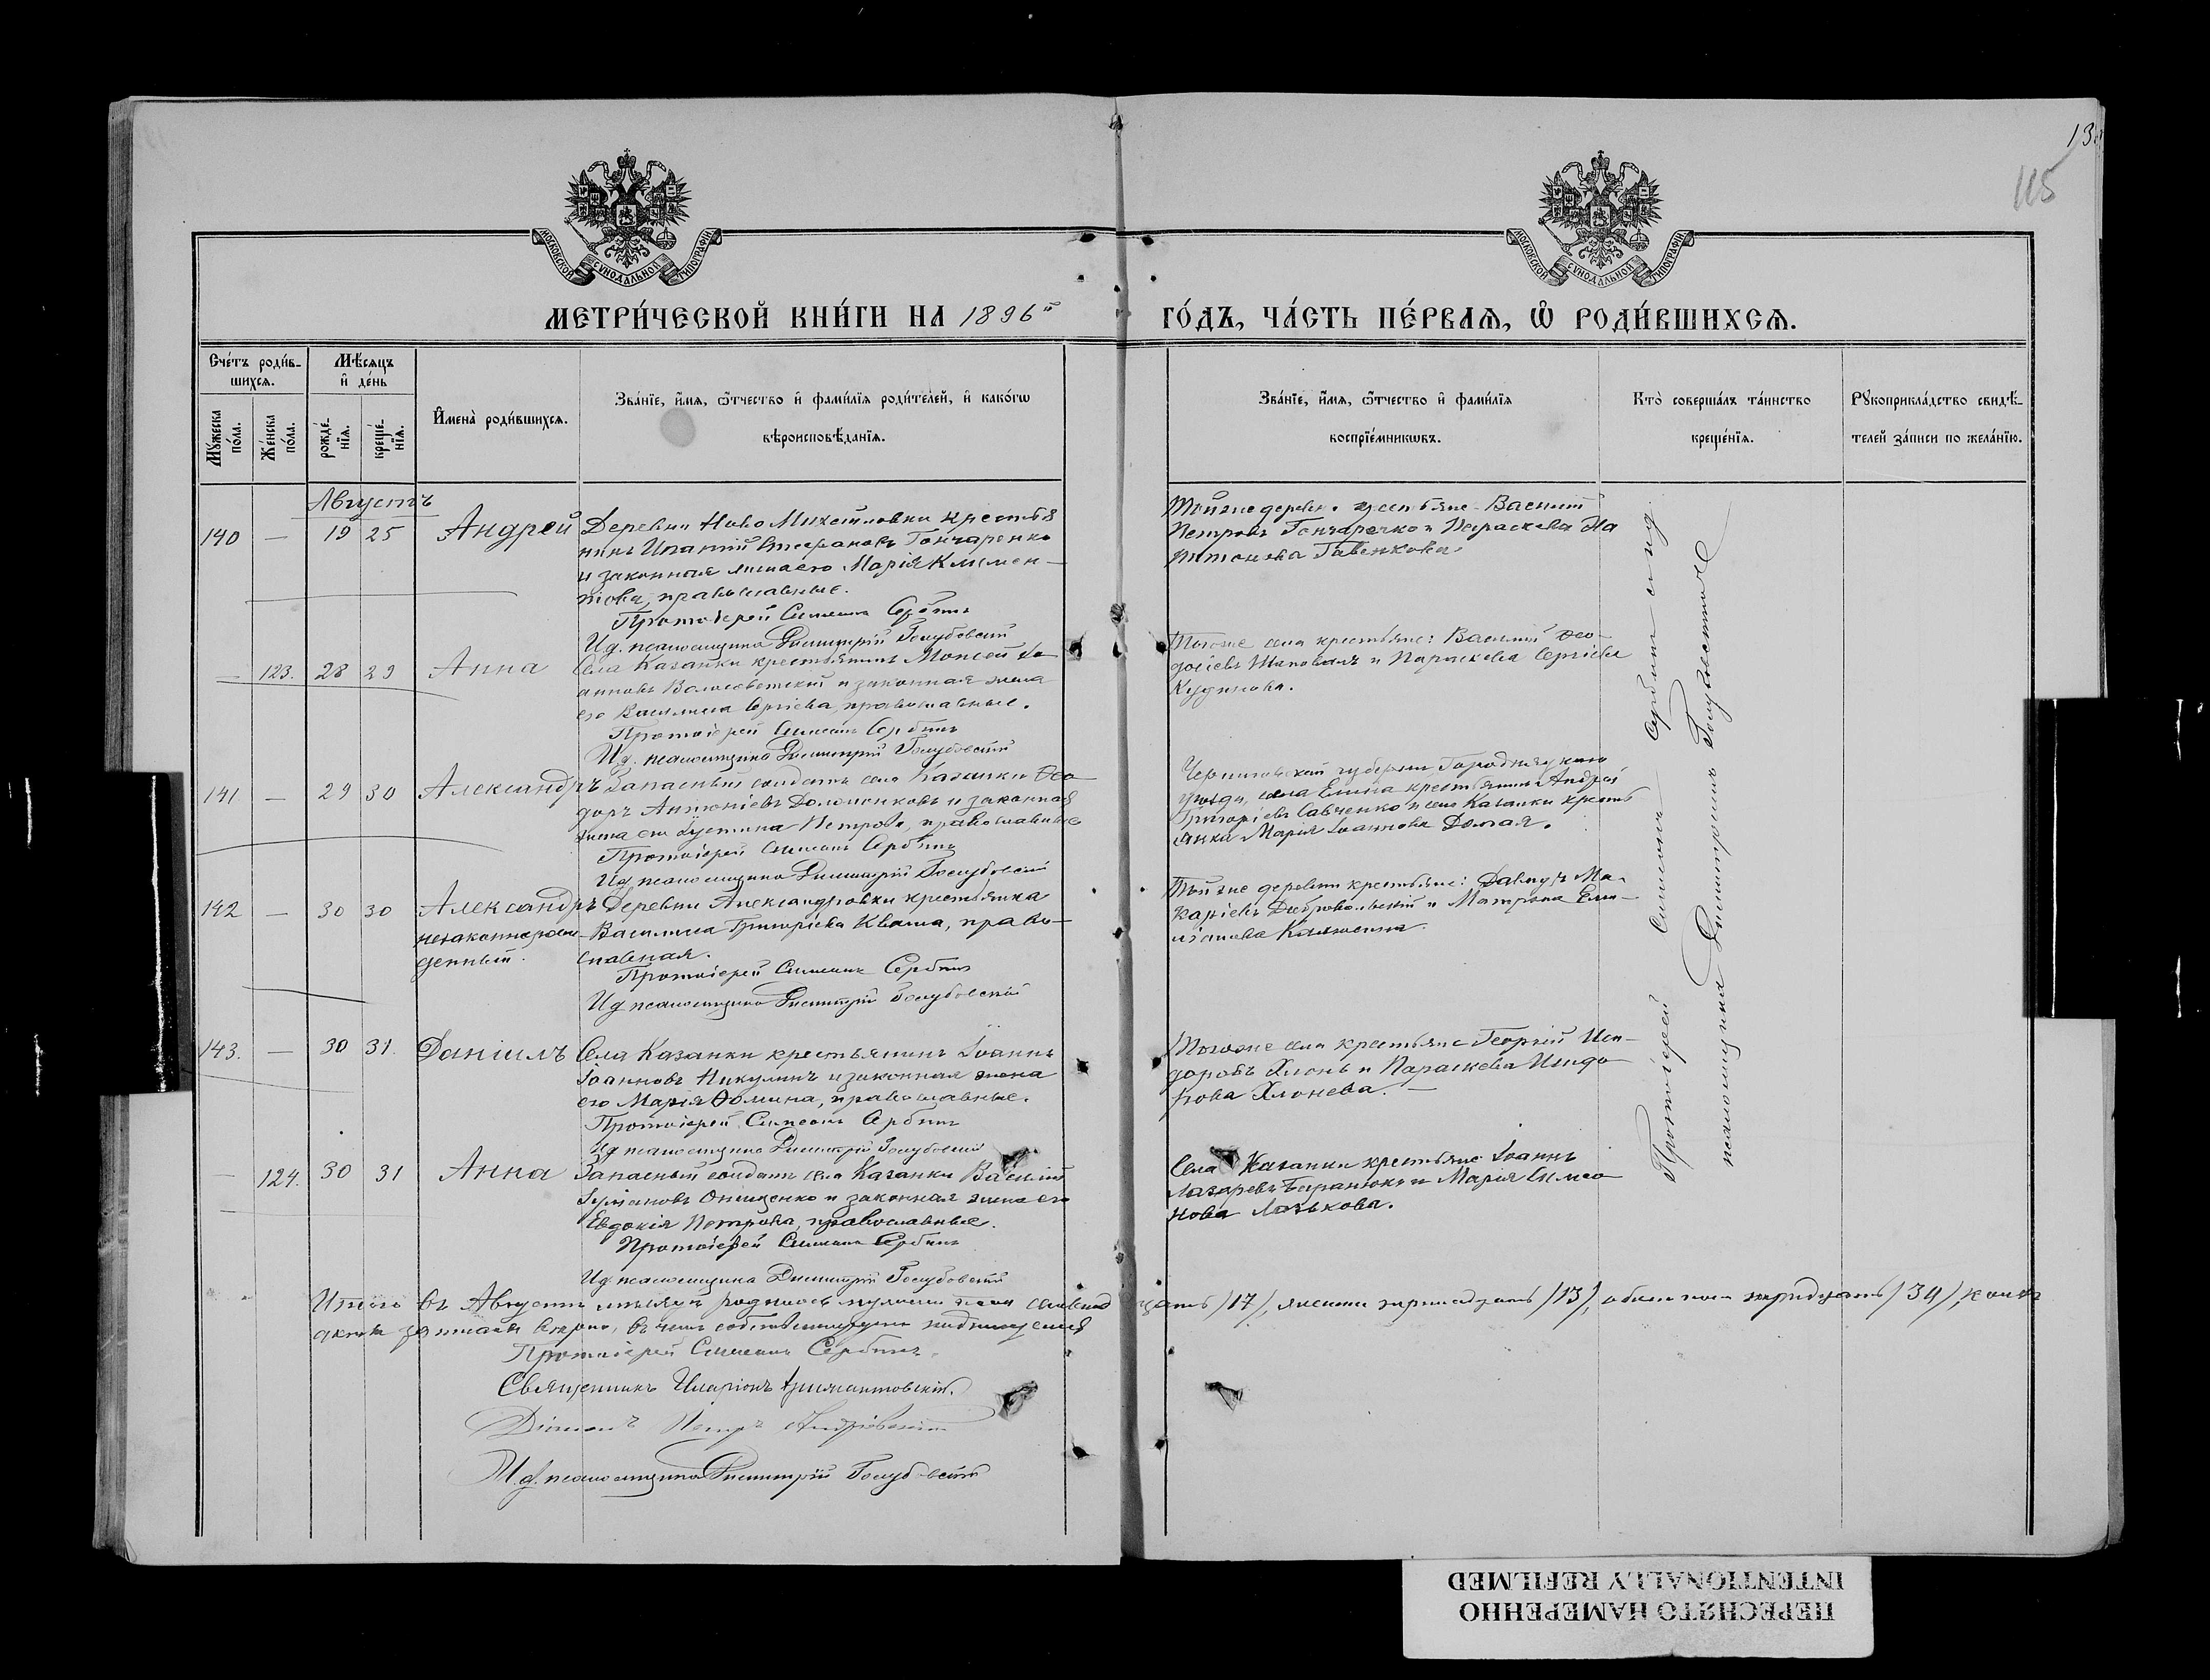 13
115
МОСКОВСКОЙ СѴНОДАЛЬНОЙ ТИПОГРАФІИ
МОСКОВСКОЙ СѴНОДАЛЬНОЙ ТИПОГРАФІИ
МЕТРИ́ЧЕСКОЙ КНИ́ГИ НА 1896й ГО́ДЪ, ЧА́СТЬ ПЕ́РВАѦ, Ѽ РОДИ́ВШИХСѦ.
Сче́тъ роди́в-
шихсѧ.
Мꙋ́жеска по́ла.
Же́нска по́ла.
Мѣ́сѧцъ
и҆ де́нь
рожде́-
нїѧ.
креще́-
нїѧ.
И҆мена̀ роди́вшихсѧ.
Зва́нїе, и҆́мѧ, ѻ҆́тчество и҆ фами́лїѧ роди́телей, и҆ како́гѡ
вѣроисповѣ́данїѧ.
Зва́нїе, и҆́мѧ, ѻ҆́тчество и҆ фами́лїѧ
воспрїе́мникѡвъ.
Кто̀ соверша́лъ та́инство
креще́нїѧ.
Рꙋкоприкла́дство свидѣ́-
телей за́писи по жела́нїю.
Августъ
140 — 19 25 Андрей
Деревни Ново Михайловки крестья
нинъ Ипатій Стефановъ Гончаренко
и законная жена его Марія Климен-
това, православные.
Протоіерей Симеонъ Сербинъ
И д. псаломщика Димитрій Голубовскій
Тойже деревни крестьяне Василій
Петровъ Гончаренко и Параскева Ха
ритонова Гавенкова
— 123. 28 29 Анна
Села Казанки крестьянинъ Моисей Іо
анновъ Волосоветскій и законная жена
его Василиса Сергіева, православные.
Протоіерей Симеонъ Сербинъ
И д. псаломщика Димитрій Голубовскій
Тогоже села крестьяне: Василій Ѳео-
досіевъ Шаповалъ и Параскева Сергіева
Кудинова.
141 — 29 30 Александръ
Запасный солдатъ села Казанки Ѳео-
доръ Антоніевъ Доломонковъ и законная
жена его Іустина Петрова, православные
Протоіерей Симеонъ Сербинъ
И д. псаломщика Димитрій Голубовскій
Черниговской губерніи Городницкаго
уезда, села крестьянинъ Андрей
Григоріевъ Савченко и села Казанки кресть
янка Марія Іоаннова Долгая.
142 — 30 30 Александръ
незаконнорож-
денный.
Деревни Александровки крестьянка
Василиса Григоріева Кваша, право-
славная.
Протоіерей Симеонъ Сербинъ
И д. псаломщика Димитрій Голубовскій
Тойже деревни крестьяне: Давидъ Ма-
каріевъ Добровольскій и Матрона
143. — 30 31. Даніилъ
Села Казанки крестьянинъ Іоаннъ
Іоанновъ Никулинъ и законная жена
его Марія Ѳомина, православные.
Протоіерей Симеонъ Сербинъ
И д псаломщика Димитрій Голубовскій
Тогоже села крестьяне Георгій Иси-
доровъ Хлонь и Параскева Исидо
рова Хлонева.
— 124. 30 31 Анна
Запасный солдатъ села Казанки Василій
Онищенко и законная жена его
Евдокія Петрова, православные.
Протоіерей Симеонъ Сербинъ
И д. псаломщика Димитрій Голубовскій
Села Казанки крестьяне Іоаннъ
Лазаревъ Баранюкъ и Марія Симео
нова Лазькова.
Протоіерей Симеонъ Сербинъ и и д.
псаломщика Димитрій Голубовскій
Итого въ Августѣ мѣсяцѣ родилось мужеска пола семнад цать /17/, женска /13/, обоего пола тридцать /34/,
Протоіерей Симеонъ Сербинъ
Священникъ Иларіонъ
Діаконъ Петръ Андріевскій
И. д. псаломщика Димитрій Голубовскій
ПЕРЕСНЯТО НАМЕРЕННО
INTENTIONALLY REFILMED